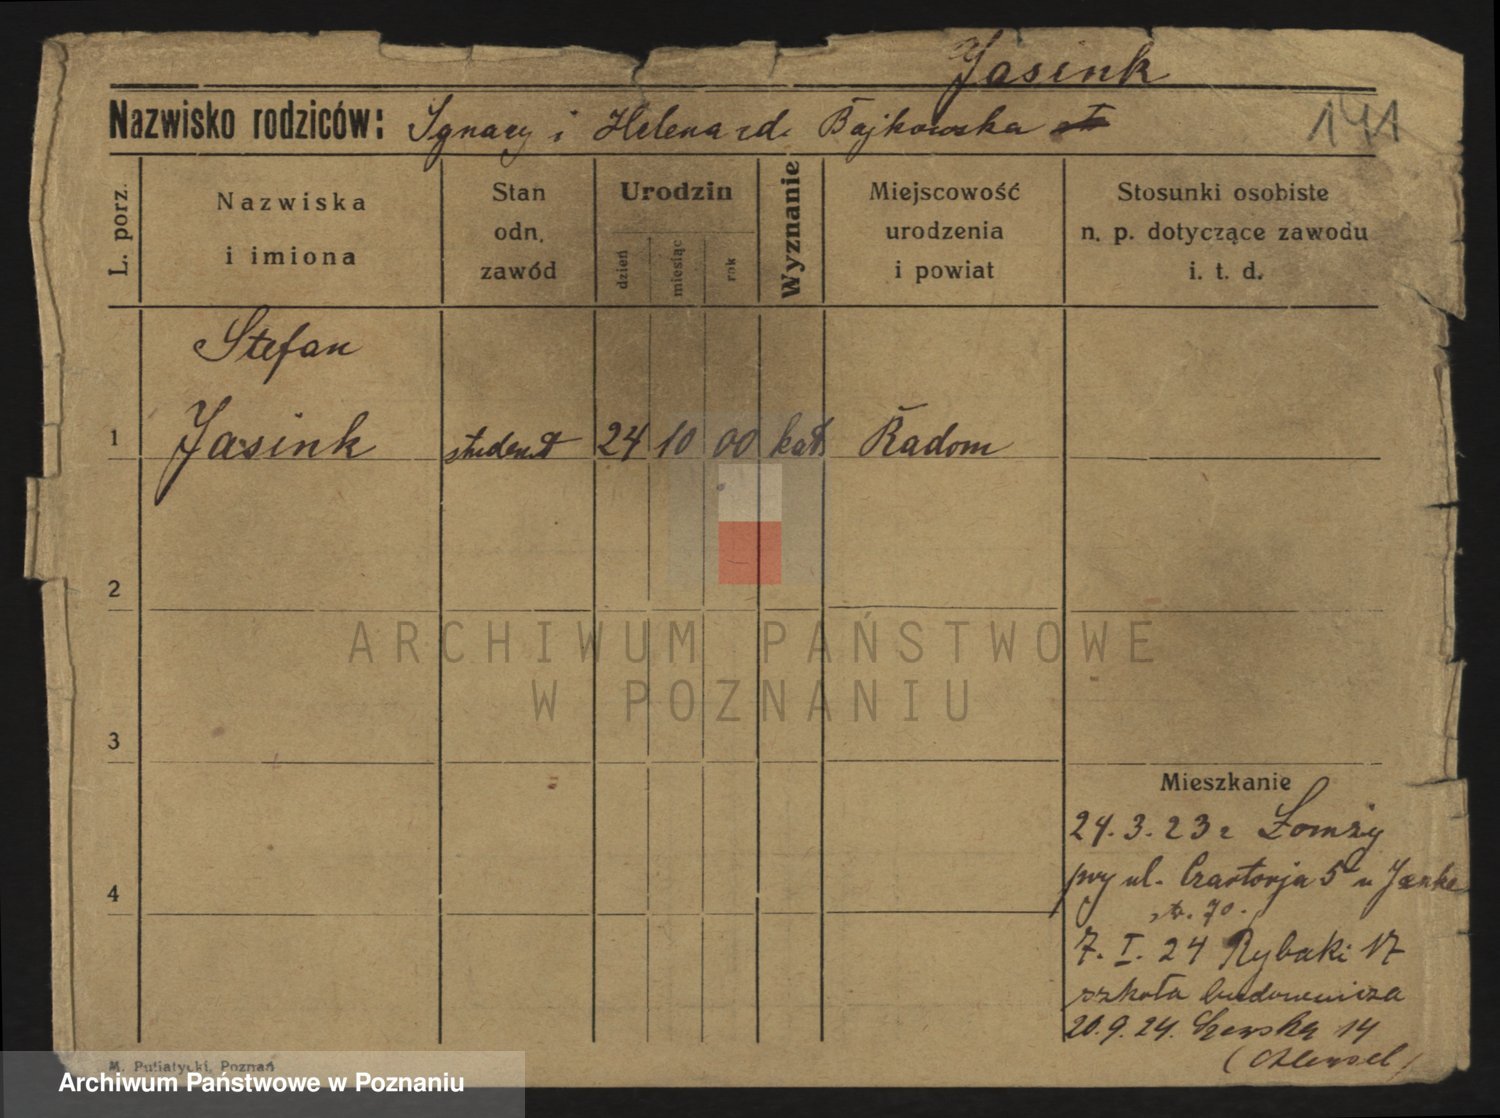 Jasink
Nazwisko rodziców: Ignacy i Helena zd. Bajkowska
141
L. porz.
Nazwiska
i imiona
Stan
odn.
zawód
Urodzin
dzień
miesiąc
rok
Wyznanie
Miejscowość
urodzenia
i powiat
Stosunki osobiste
n. p. dotyczące zawodu
i. t. d.
Stefan
1 Jasink student 24 10 00 kat Radom
2
ARCHIWUM PAŃSTWOWE
W POZNANIU
3
Mieszkanie
24. 3. 23 z Łomży
przy ul. Czartorja 5 u Janke
str. 70.
4
7. I. 24 Rybaki 17
szkoła budownicza
20. 9. 24. 14
M. Putiatycki, Poznań
Archiwum Państwowe w Poznaniu